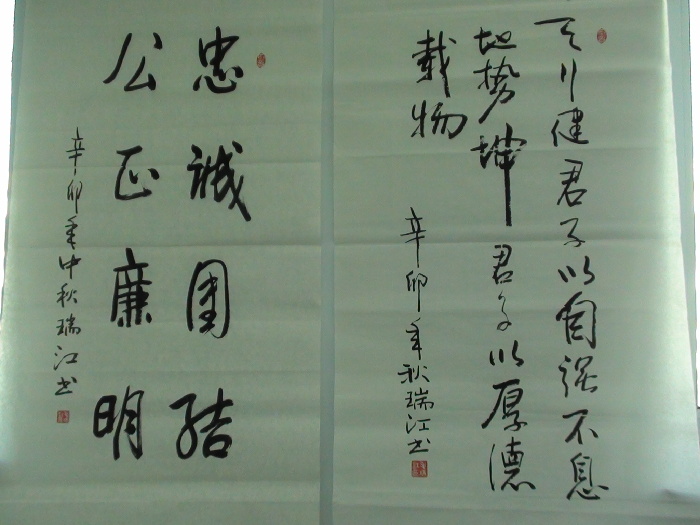 天行健君子以自强不息
地势坤君子以厚德
载物
辛卯年秋瑞江书
忠诚团结
公正廉明
辛卯年中秋瑞江书